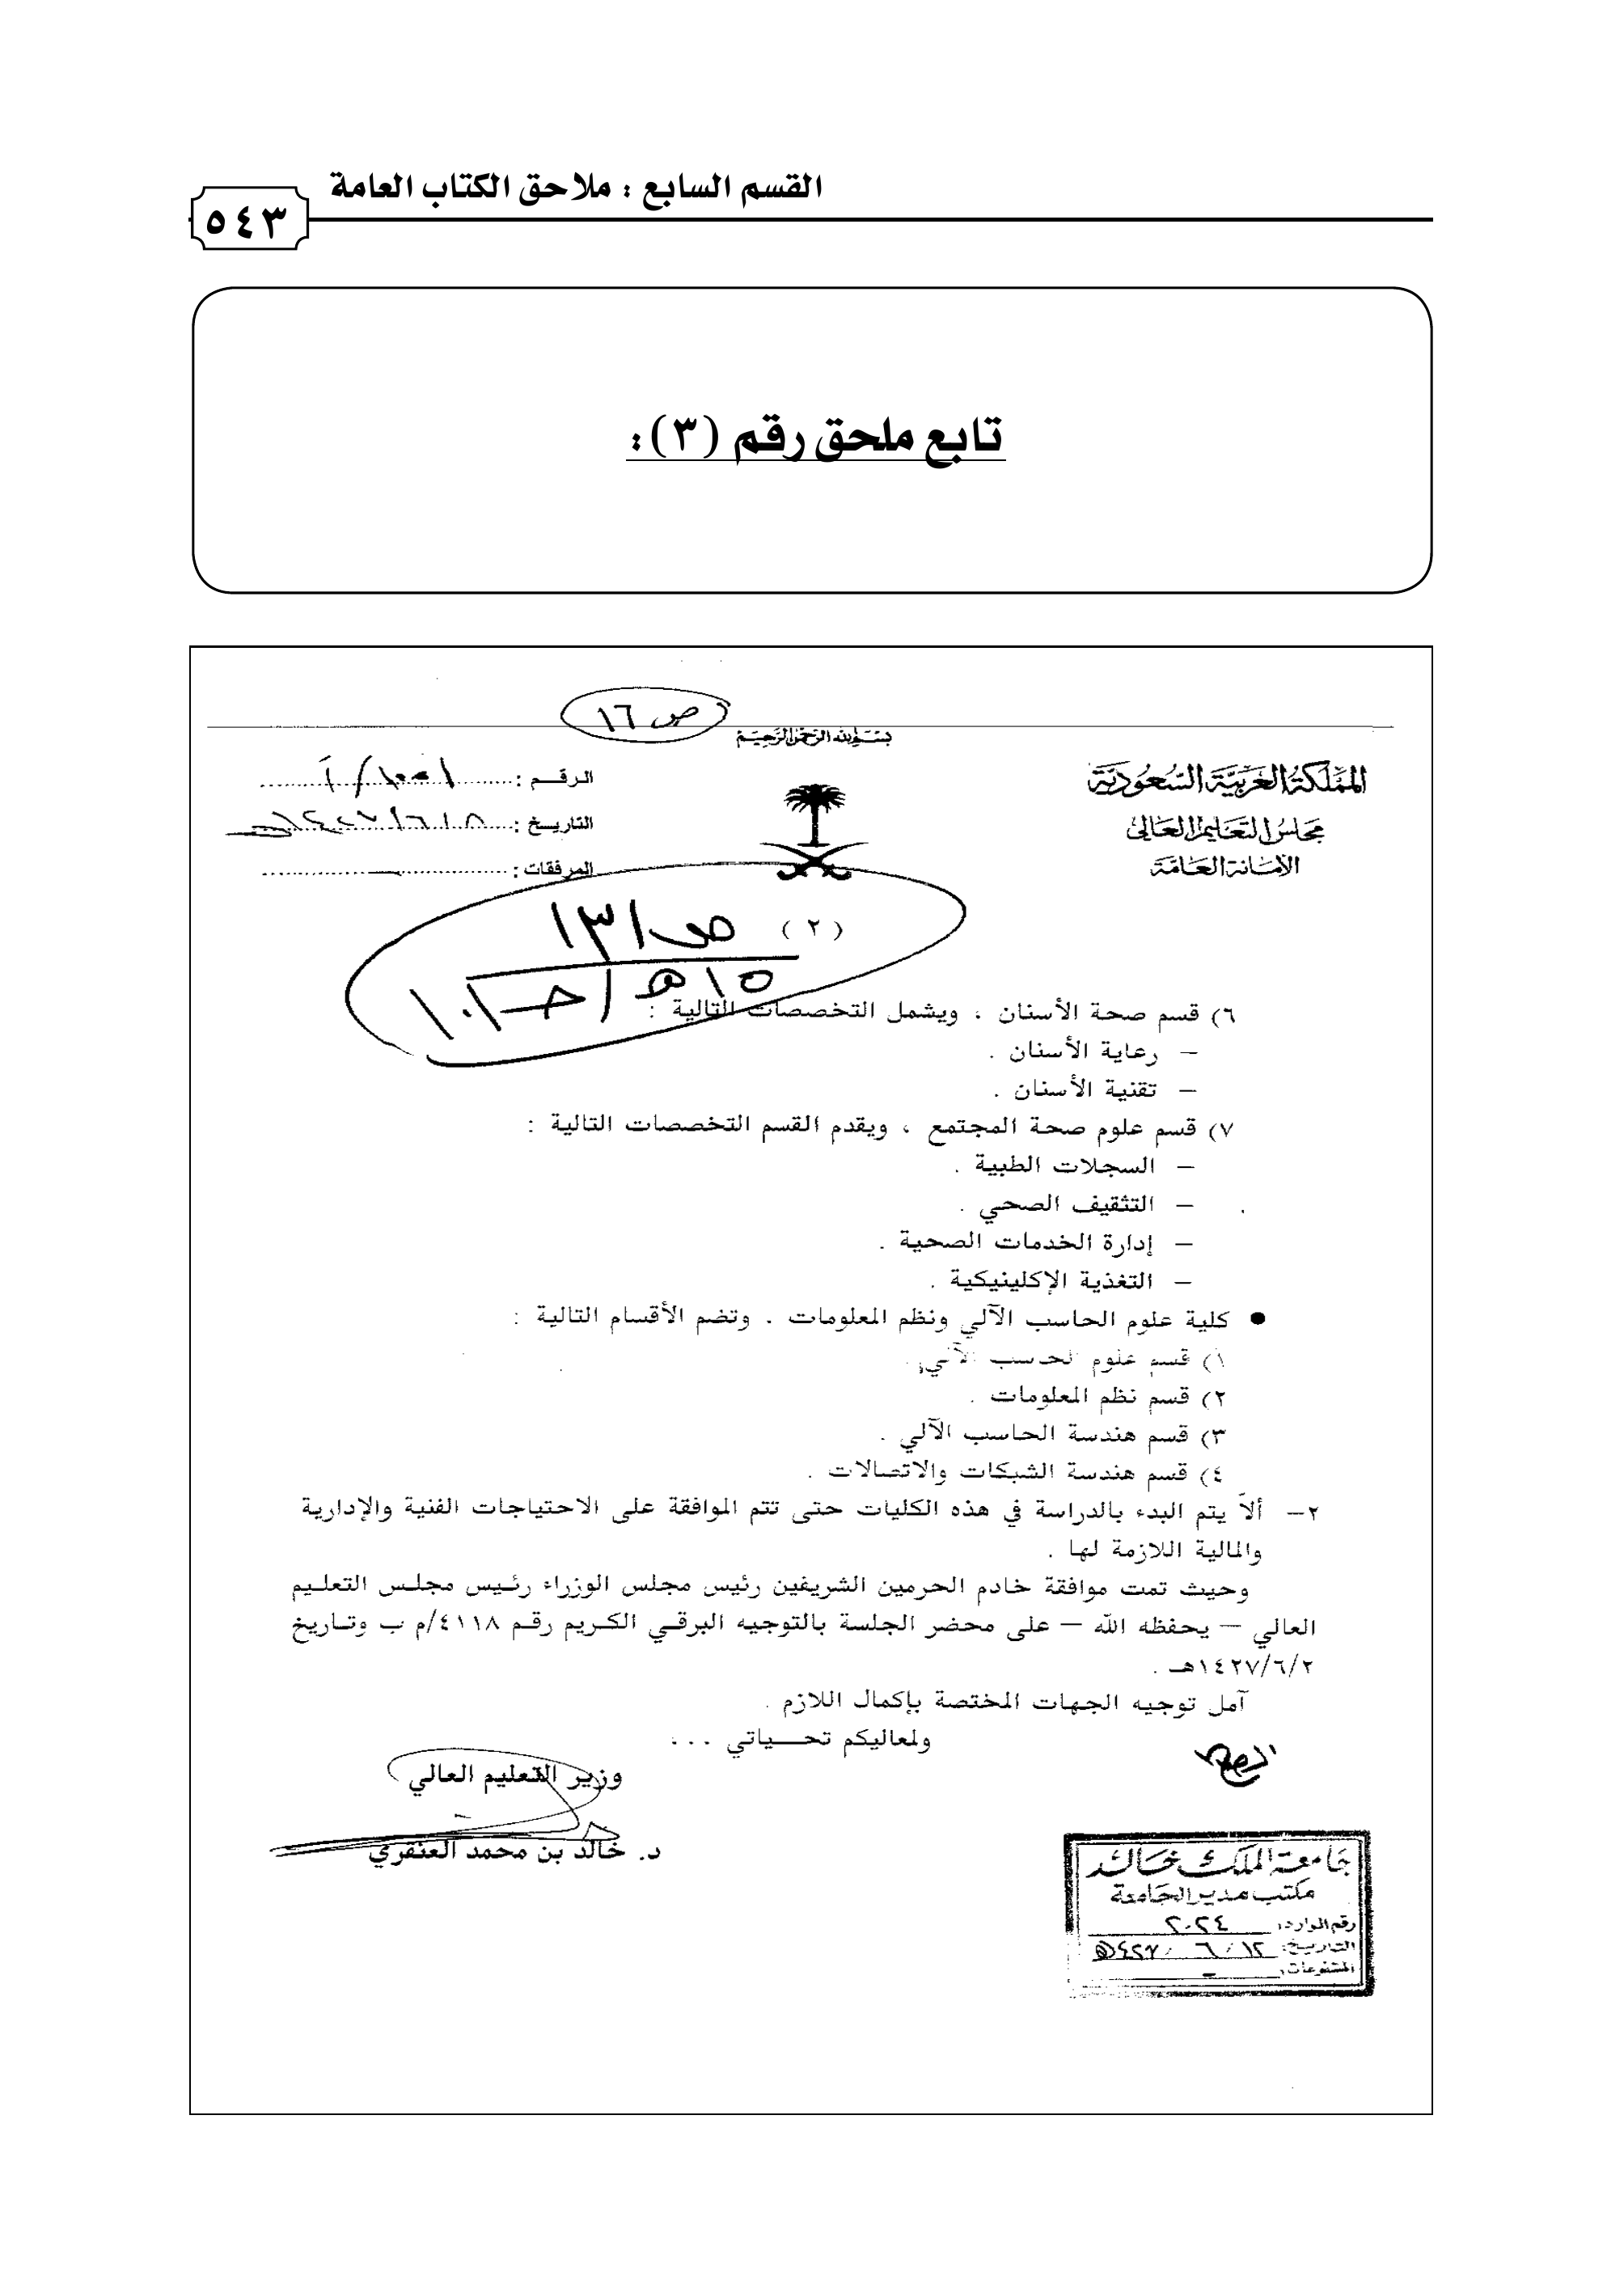 القسم السابع : ملاحق الكتاب العامة
٥٤٣
تابع ملحق رقم (٣):
ص ١٦
بسم الله الرحمن الرحيم
المملكة العربية السعودية
مجلس التعليم العالي
الأمانة العامة
الرقم :
التاريخ : ١٤٢٧/٦/٨هـ
المرفقات :
(٢)
ص ١٣١
٦) قسم صحة الأسنان ، ويشمل التخصصات التالية :
– رعاية الأسنان .
– تقنية الأسنان .
٧) قسم علوم صحة المجتمع ، ويقدم القسم التخصصات التالية :
– السجلات الطبية .
– التثقيف الصحي .
– إدارة الخدمات الصحية .
– التغذية الإكلينيكية .
● كلية علوم الحاسب الآلي ونظم المعلومات . وتضم الأقسام التالية :
١) قسم علوم الحاسب الآلي .
٢) قسم نظم المعلومات .
٣) قسم هندسة الحاسب الآلي .
٤) قسم هندسة الشبكات والاتصالات .
٢– ألاّ يتم البدء بالدراسة في هذه الكليات حتى تتم الموافقة على الاحتياجات الفنية والإدارية
والمالية اللازمة لها .
وحيث تمت موافقة خادم الحرمين الشريفين رئيس مجلس الوزراء رئيس مجلس التعليم
العالي – يحفظه الله – على محضر الجلسة بالتوجيه البرقي الكريم رقم ٤١١٨/م ب وتاريخ
١٤٢٧/٦/٢هـ .
آمل توجيه الجهات المختصة بإكمال اللازم .
ولمعاليكم تحياتي ...
وزير التعليم العالي
د. خالد بن محمد العنقري
جامعة الملك خالد
مكتب مدير الجامعة
رقم الوارد: ٢٠٢٤
التاريخ: ١٢ / ٦ / ٤٢٧هـ
المشفوعات: –